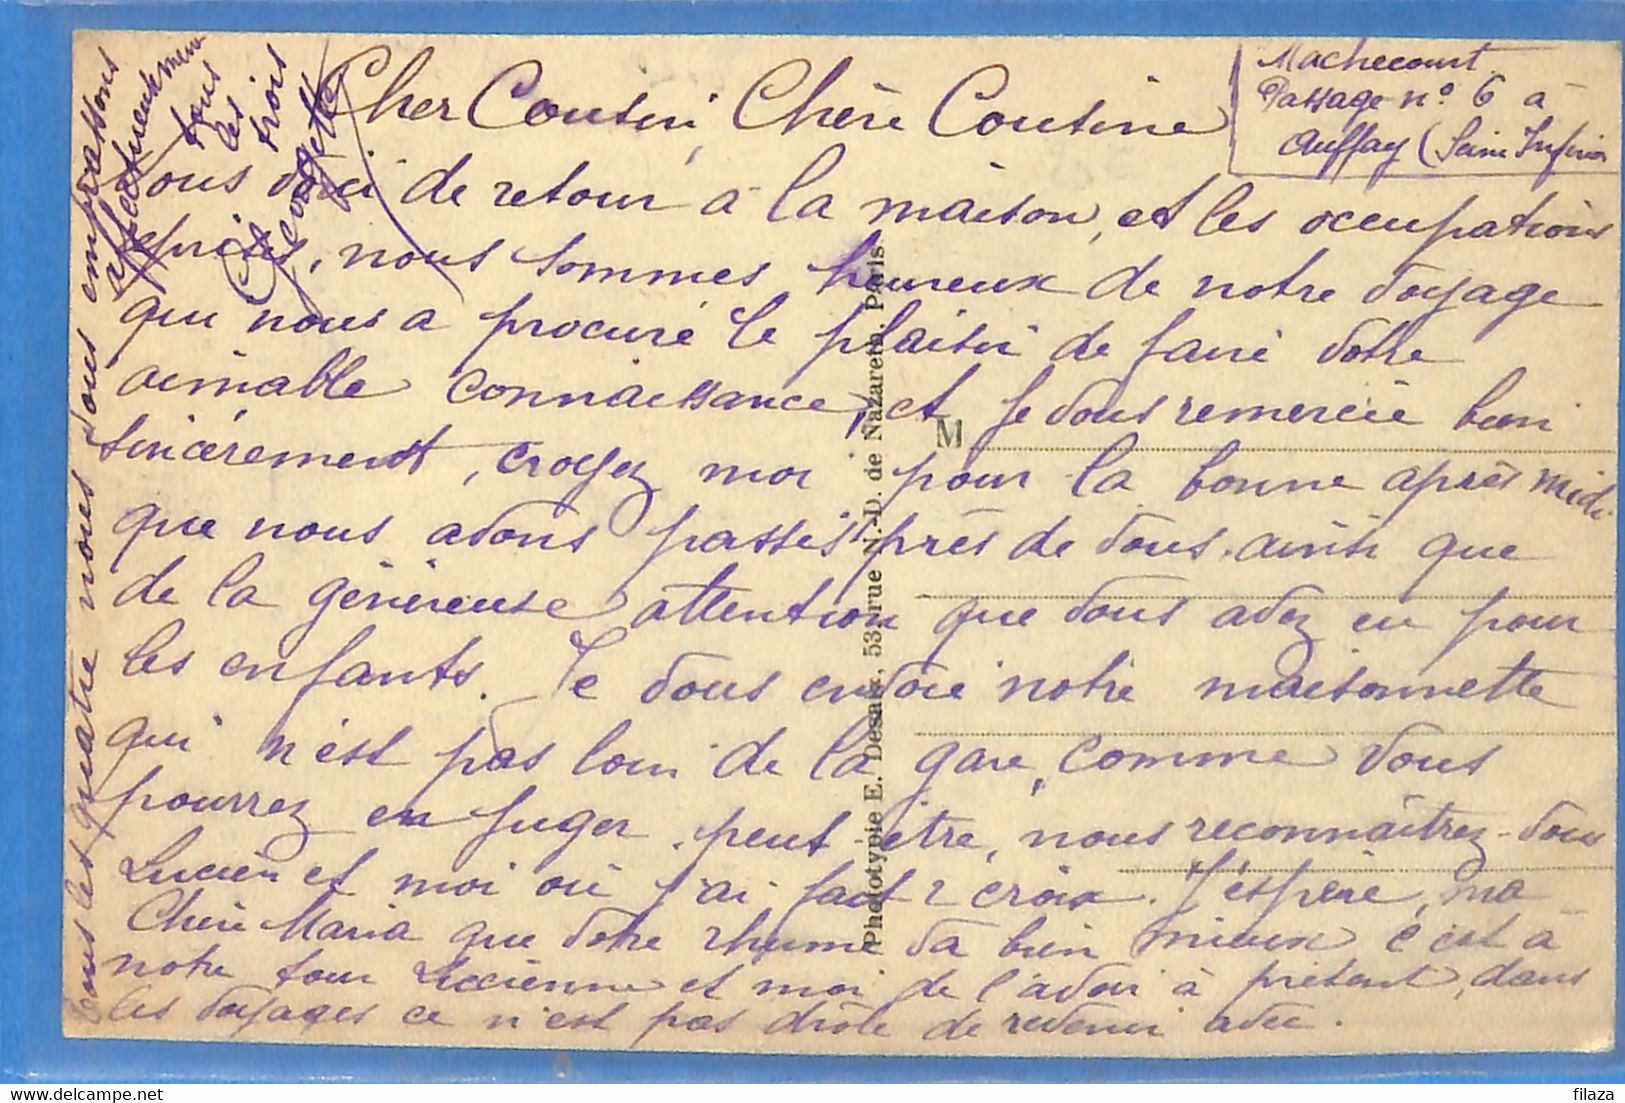 Machecourt
Passage n° 6 à
Auffay (Seine Infrieu
Cher Cousin, Chère Cousine
Nous voici de retour à la maison, et les occupations
reprises, nous sommes heureux de notre voyage
qui nous a procuré le plaisir de faire votre
aimable connaissance, et je vous remercie bien
sincèrement, croyez moi pour la bonne après midi
que nous avons passés près de vous, ainsi que
de la généreuse attention que vous avez eu pour
les enfants. Je vous envoie notre maisonnette
qui n'est pas loin de la gare, comme vous
pourrez en juger, peut être, nous reconnaîtrez-vous
Lucien et moi où j'ai fait 2 croix. J'espère, ma
Chère Maria que votre rhume va bien mieux c'est à
notre tour Lucienne et moi de l'avoir à présent, dans
les voyages ce n'est pas drôle de revenir avec.
tous les quatre nous vous embrassons
affectueusement
tous
les
trois
Georgette
M
Phototypie E. Desaix, 53, rue N.-D. de Nazareth. Paris
delcampe.net
filaza